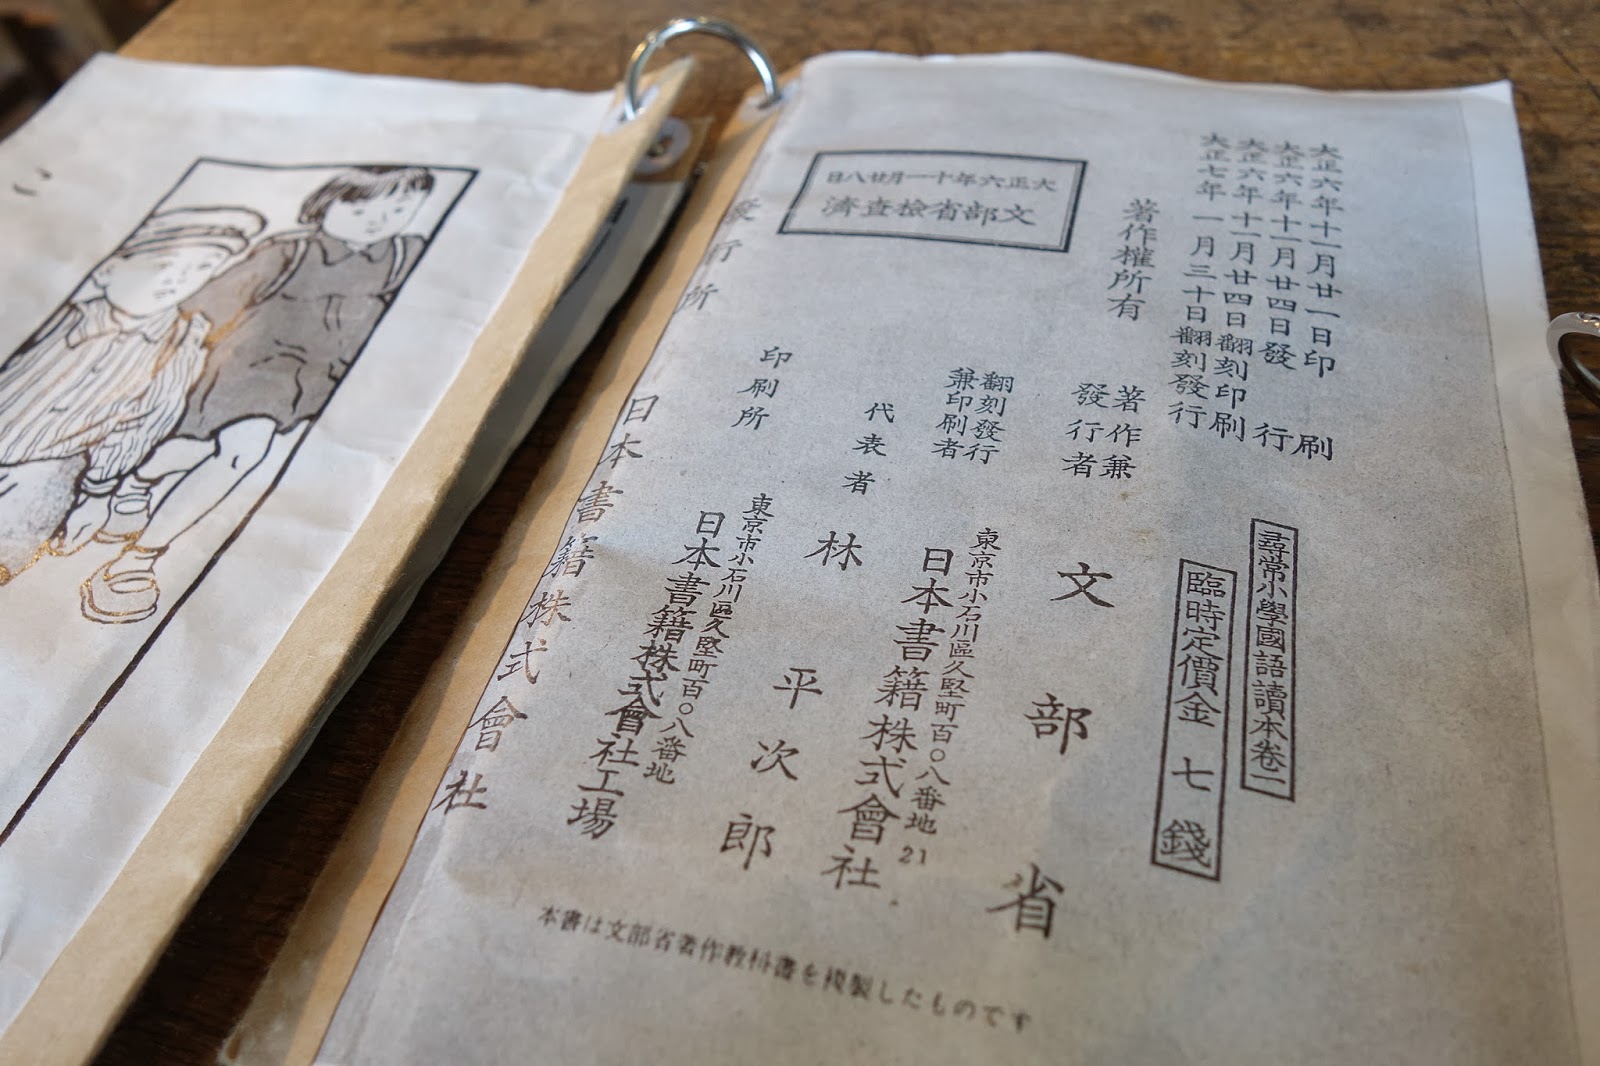 大正六年十一月廿一日印刷
大正六年十一月廿四日發行
大正六年十一月廿四日翻刻印刷
大正七年一月三十日翻刻發行
尋常小學國語讀本卷一
臨時定價金七錢
著作權所有
著作兼
發行者
文部省
翻刻發行
兼印刷者
東京市小石川區久堅町百〇八番地
日本書籍株式會社
21
代表者
林平次郎
大正六年十一月廿八日
文部省檢査濟
印刷所
東京市小石川區久堅町百〇八番地
日本書籍株式會社工場
發行所
日本書籍株式會社
本書は文部省著作教科書を複製したものです
こ